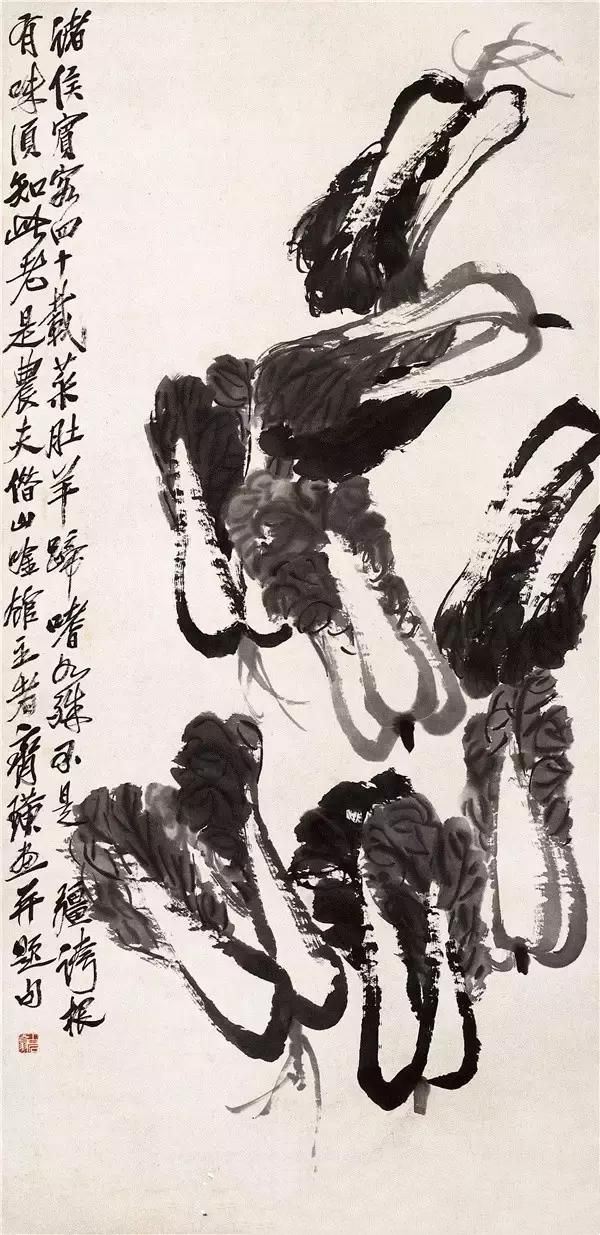 諸侯賓客四十載菜肚羊蹄嗜各殊不是彊誇根
有味須知此老是農夫借山唫館主者齊璜畫并題句